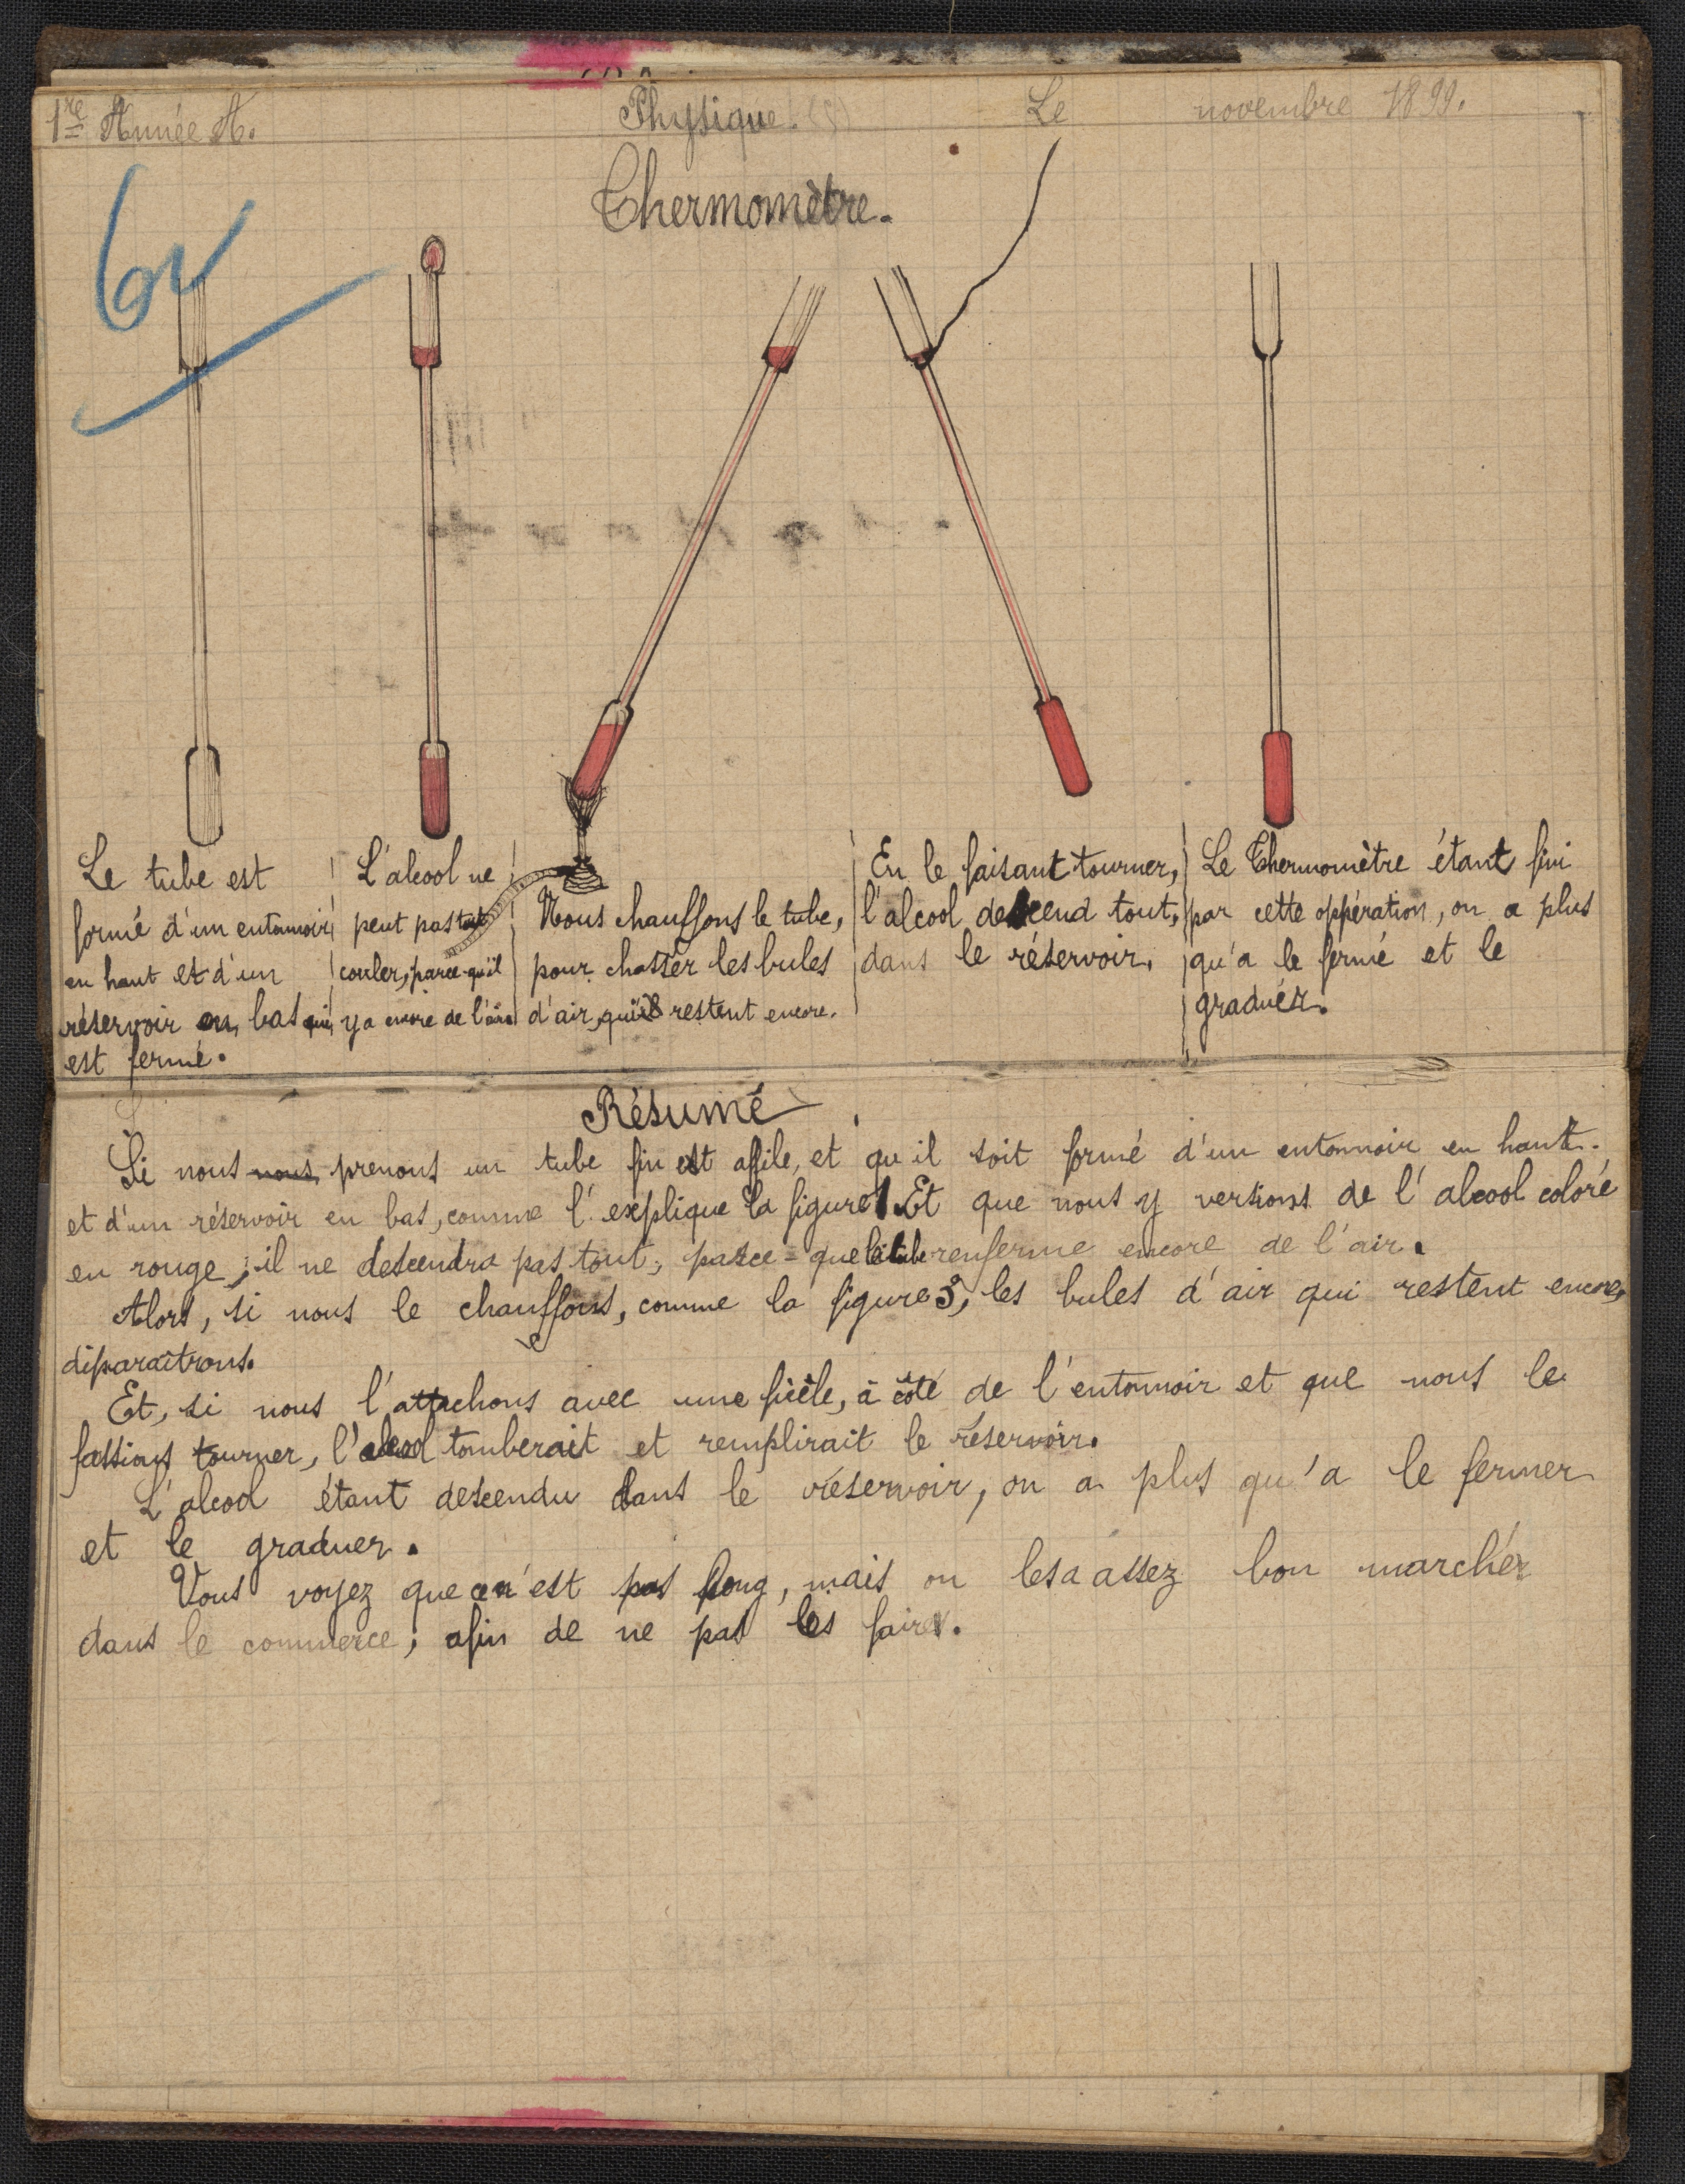 1re Année A.
Physique.
Le novembre 1899.
Thermomètre.
Le tube est
formé d'un entonnoir
en haut et d'un
réservoir en bas qui
est fermé.
L'alcool ne
peut pas tout
couler, parce-qu'il
y a encore de l'air
Nous chauffons le tube,
pour chasser les bules
d'air, qui restent encore.
En le faisant tourner,
l'alcool descend tout,
dans le réservoir.
Le Thermomètre étant fini
par cette oppération, on a plus
qu'a le fermé et le
graduér.
Résumé
Si nous nous prenons un tube fin est affile, et qu'il soit formé d'un entonnoir en haut.
et d'un réservoir en bas, comme l'explique la figure 1. Et que nous y versions de l'alcool coloré
en rouge, il ne descendra pas tout, parce-que le tube renferme encore de l'air.
Alors, si nous le chauffons, comme la figure 3, les bules d'air qui restent encore,
disparaîtrons.
Et, si nous l'attachons avec une ficèle, à côté de l'entonnoir et que nous le
fassions tourner, l'alcool tomberait et remplirait le réservoir.
L'alcool étant descendu dans le réservoir, on a plus qu'a le fermer
et le graduer.
Vous voyez que ce n'est pas long, mais on les a assez bon marchér
dans le commerce; afin de ne pas les faire.